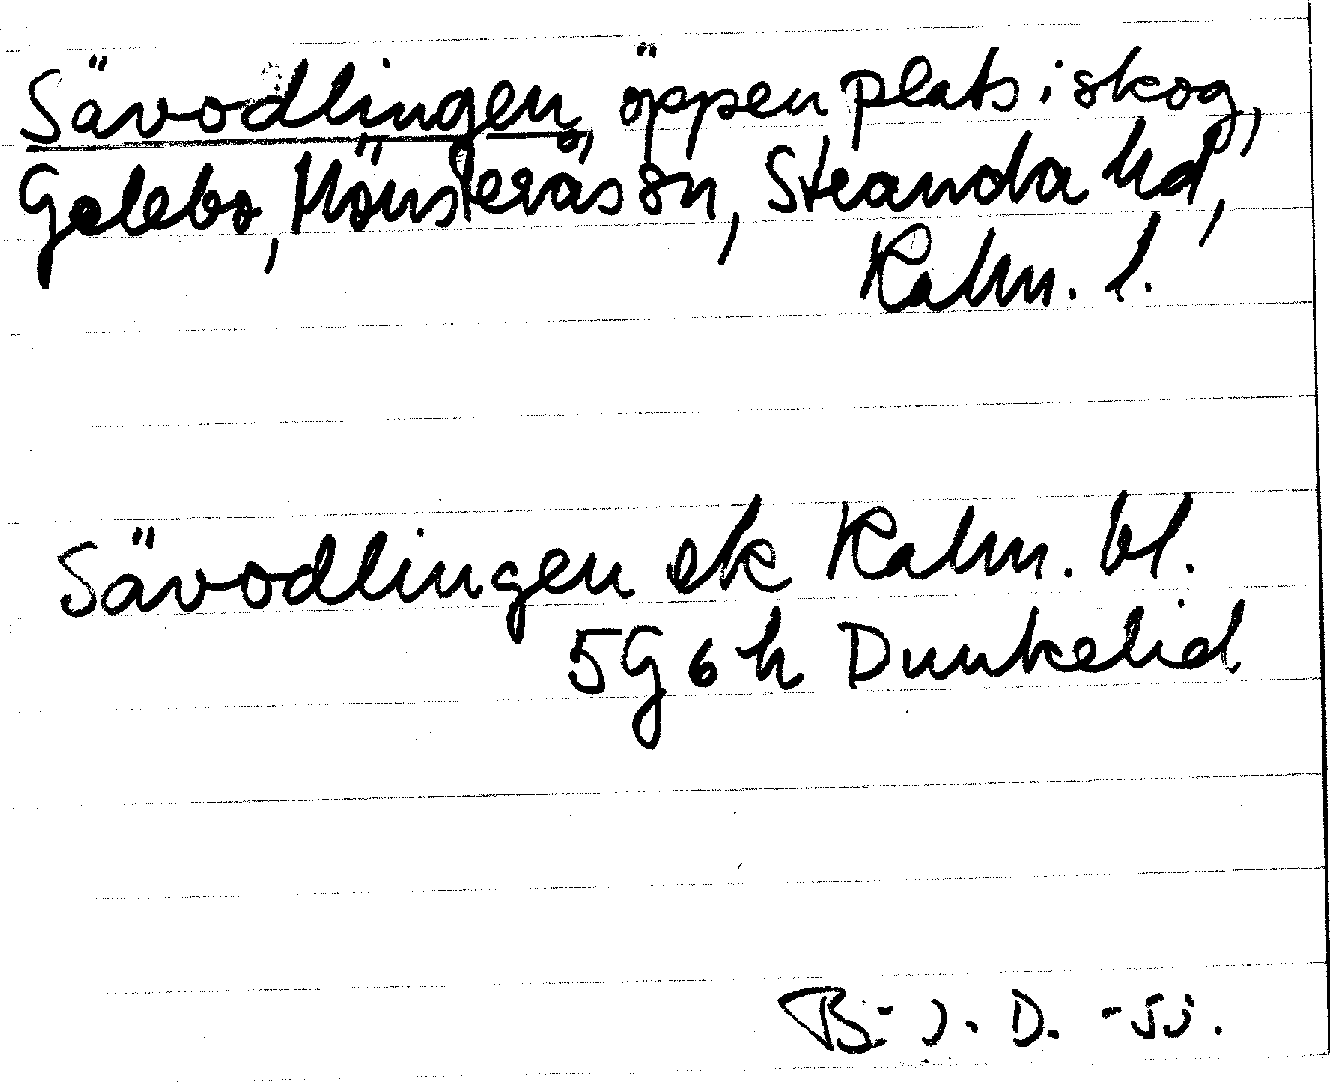 Sävodlingen, öppen plats i skog,
Gelebo, Mönsterås sn, Stranda hd,
Kalm. l.
Sävodlingen ek Kalm. bl.
5G 6h Dunkelid
B.-J. D. -55.